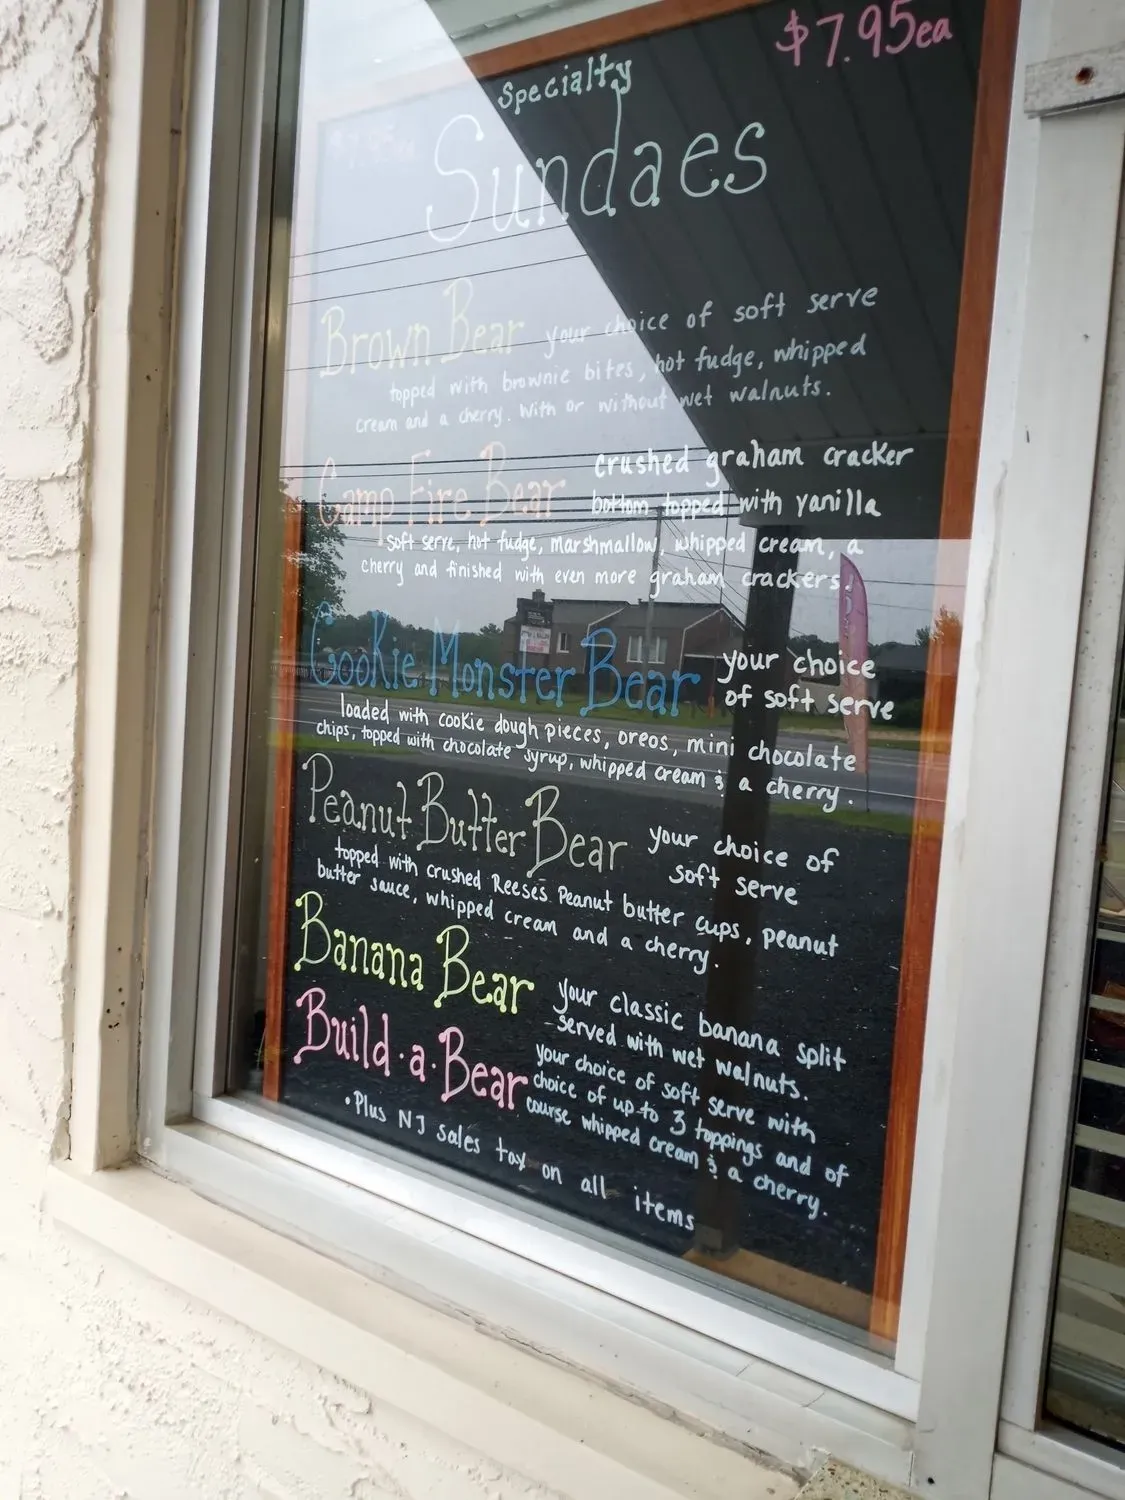 $7.95ea
Specialty
Sundaes
Brown Bear your choice of soft serve
topped with brownie bites, hot fudge, whipped
cream and a cherry. With or without wet walnuts.
Camp Fire Bear crushed graham cracker
bottom topped with vanilla
soft serve, hot fudge, marshmallow, whipped cream, a
cherry and finished with even more graham crackers.
Cookie Monster Bear your choice
of soft serve
loaded with cookie dough pieces, oreos, mini chocolate
chips, topped with chocolate syrup, whipped cream & a cherry.
Peanut Butter Bear your choice of
soft serve
topped with crushed Reese's Peanut butter cups, peanut
butter sauce, whipped cream and a cherry.
Banana Bear your classic banana split
-served with wet walnuts.
Build-a-Bear your choice of soft serve with
choice of up to 3 toppings and of
course whipped cream & a cherry.
•Plus NJ sales tax on all items